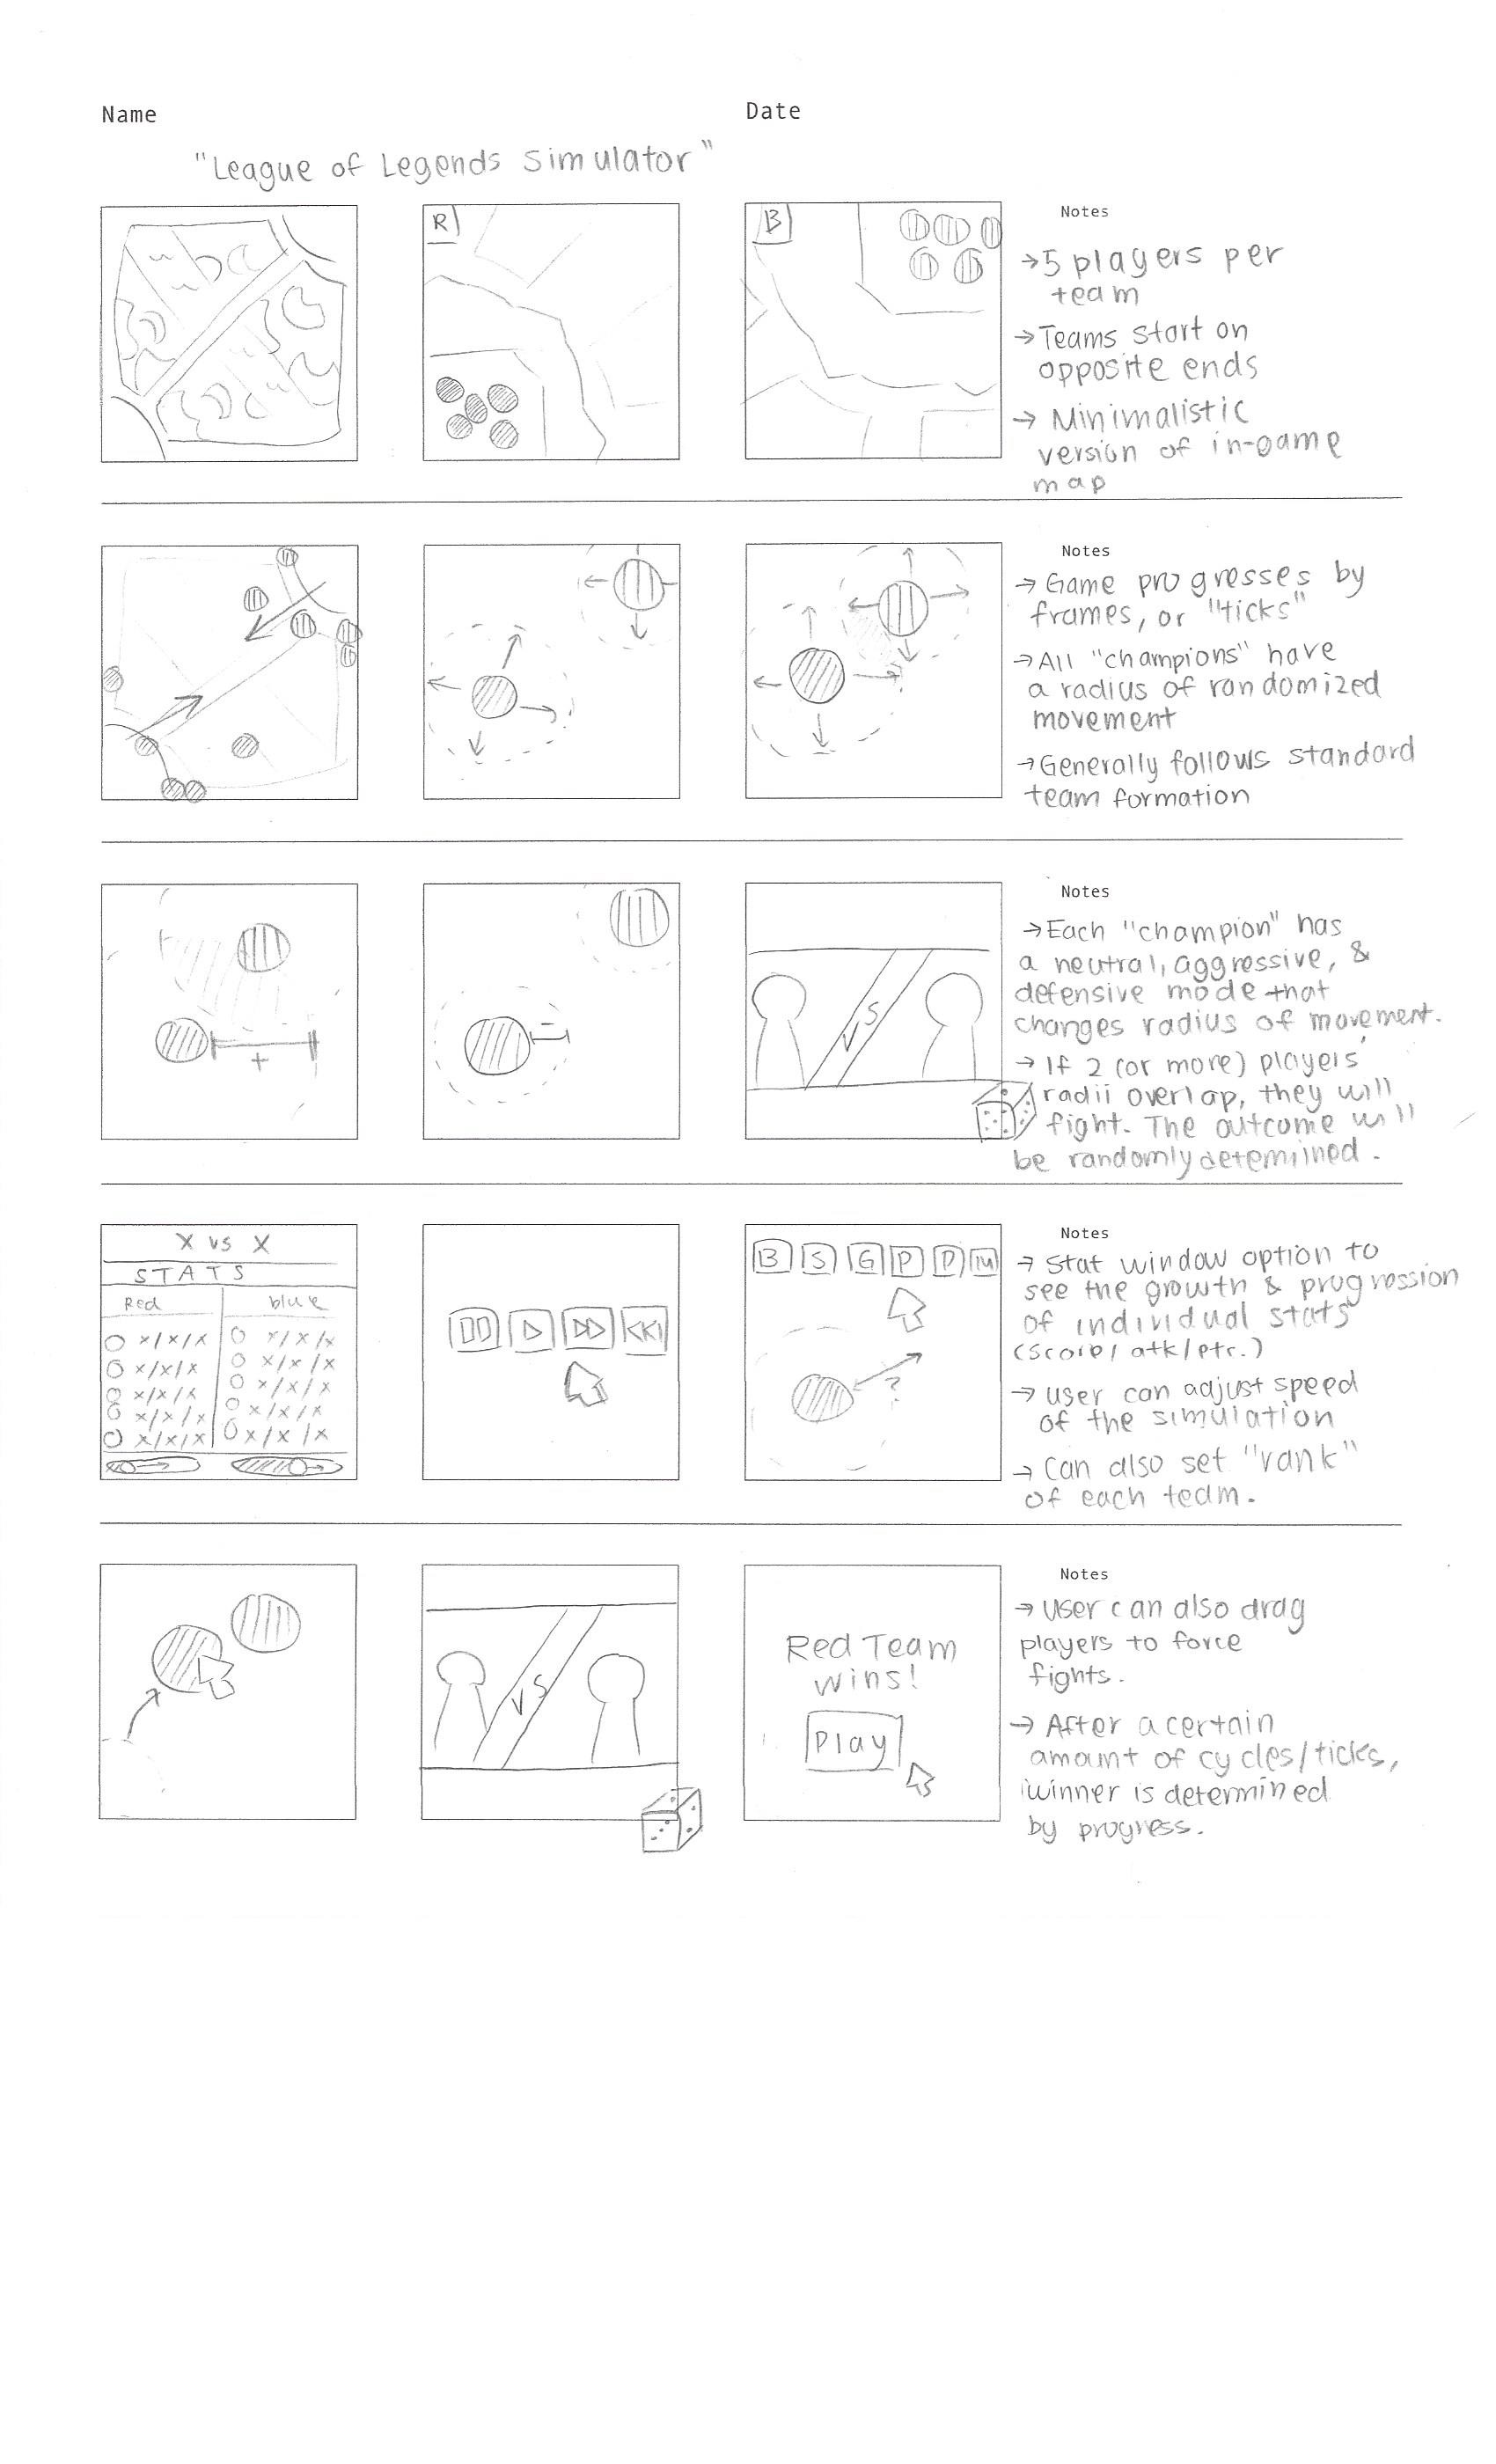 Name
Date
"League of Legends Simulator"
R
B
Notes
→5 players per
team
→Teams start on
opposite ends
→ Minimalistic
version of in-game
map
Notes
→ Game progresses by
frames, or "ticks"
→All "champions" have
a radius of randomized
movement
→Generally follows standard
team formation
+
-
VS
Notes
→Each "champion" has
a neutral, aggressive, &
defensive mode that
changes radius of movement.
→ If 2 (or more) players'
radii overlap, they will
fight. The outcome will
be randomly detemined.
X vs X
STATS
Red
blue
x/x/x
x/x/x
x/x/x
x/x/x
x/x/x
x/x/x
x/x/x
x/x/x
x/x/x
x/x/x
B S G P D M
?
Notes
→ Stat window option to
see the growth & progression
of individual stats
(score/atk/etc.)
→ User can adjust speed
of the simulation
→ Can also set "rank"
of each team.
VS
Red Team
wins!
Play
Notes
→ User can also drag
players to force
fights.
→ After a certain
amount of cycles/ticks,
winner is determined
by progress.